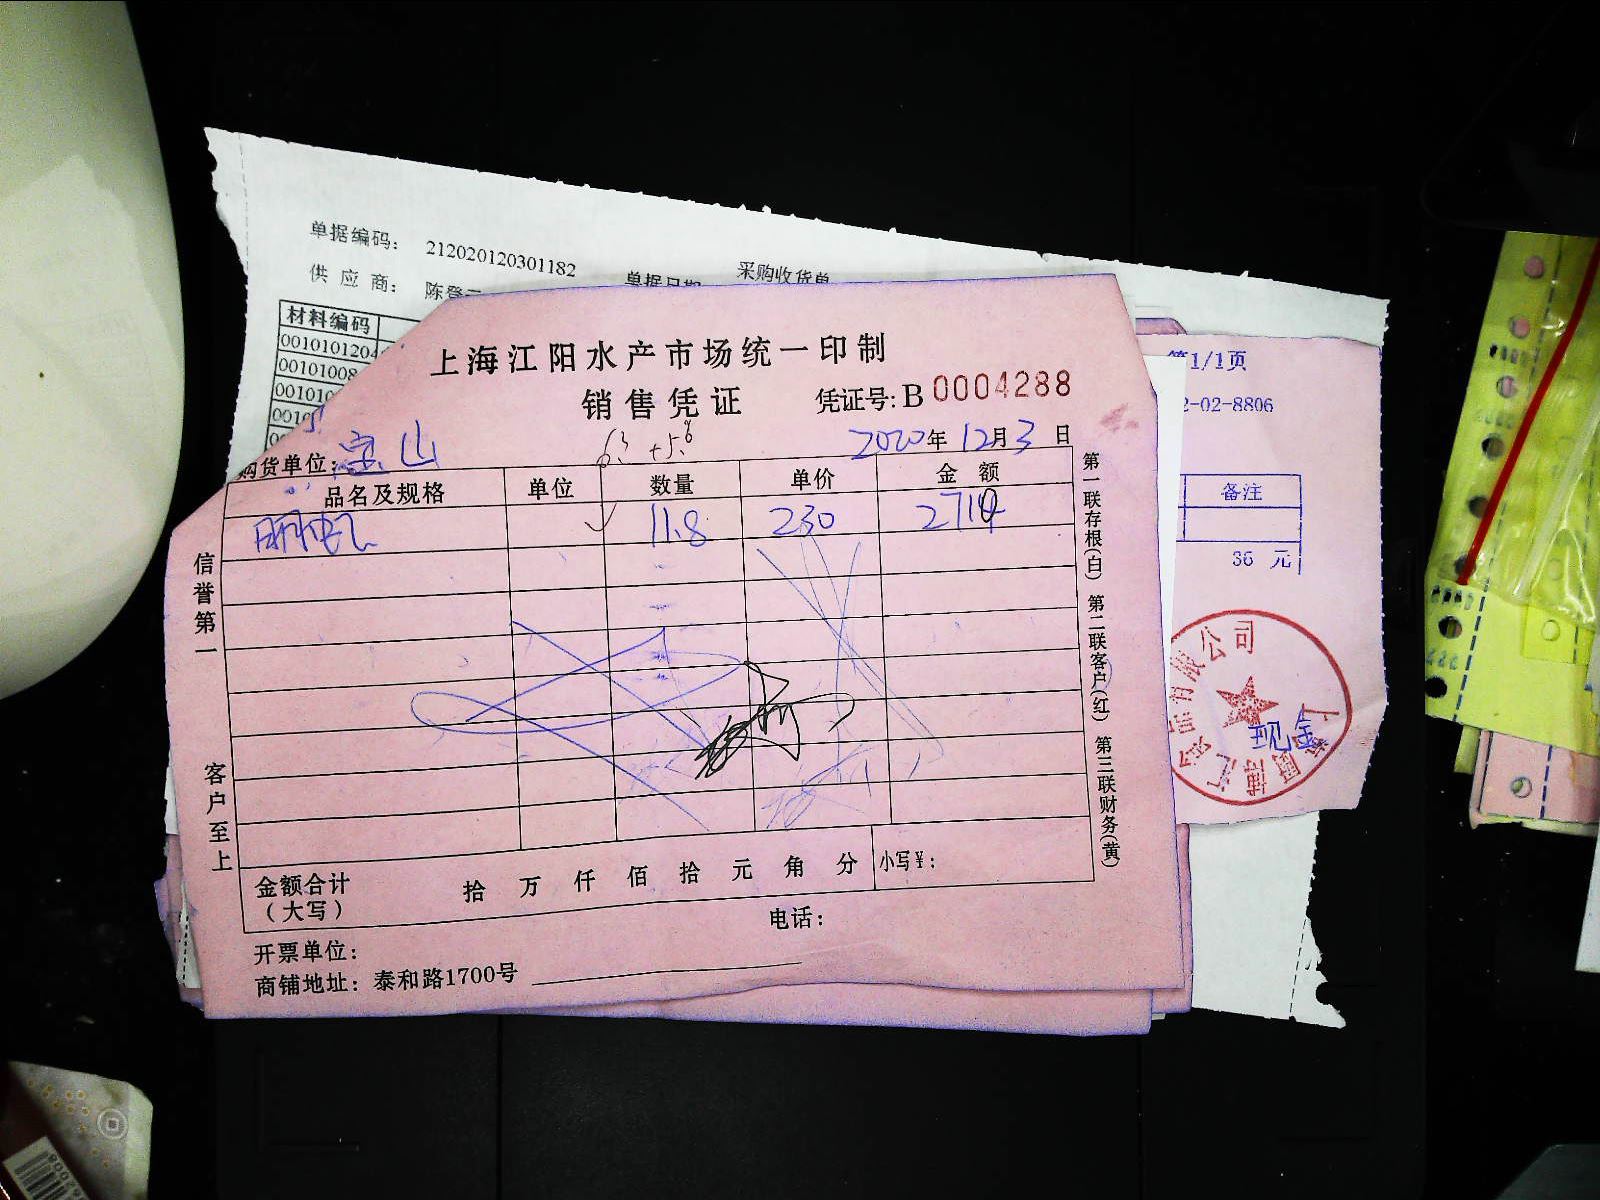 单据编码: 212020120301182
采购收货单
供应商:
材料编码
上海江阳水产市场统一印制
销售凭证 凭证号: B 0004288
购货单位: 宝山 2020年12月3日
6.3 +5.8
品名及规格 单位 数量 单价 金额
11.8 230 2714
信誉第一
客户至上
第一联存根(白) 第二联客户(红) 第三联财务(黄)
金额合计 拾 万 仟 佰 拾 元 角 分 小写¥:
(大写)
电话:
开票单位:
商铺地址: 泰和路1700号
第1/1页
2-02-8806
备注
36 元
现金